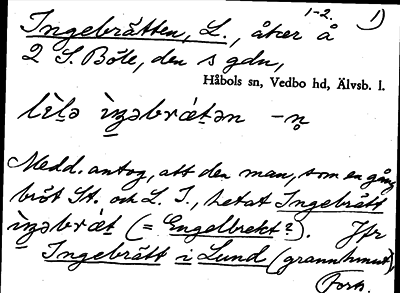 1-2. 1)
Ingebrätten, L., åker å
2 S. Böle, den s gdn,
Håbols sn, Vedbo hd, Älvsb. l.
Medd. antog, att den man, som en gång
bröt St. och L. I., hetat Ingebrätt
(= Engelbrekt?). Jfr
Ingebrätt i Lund (grannhmnt),
Forts.